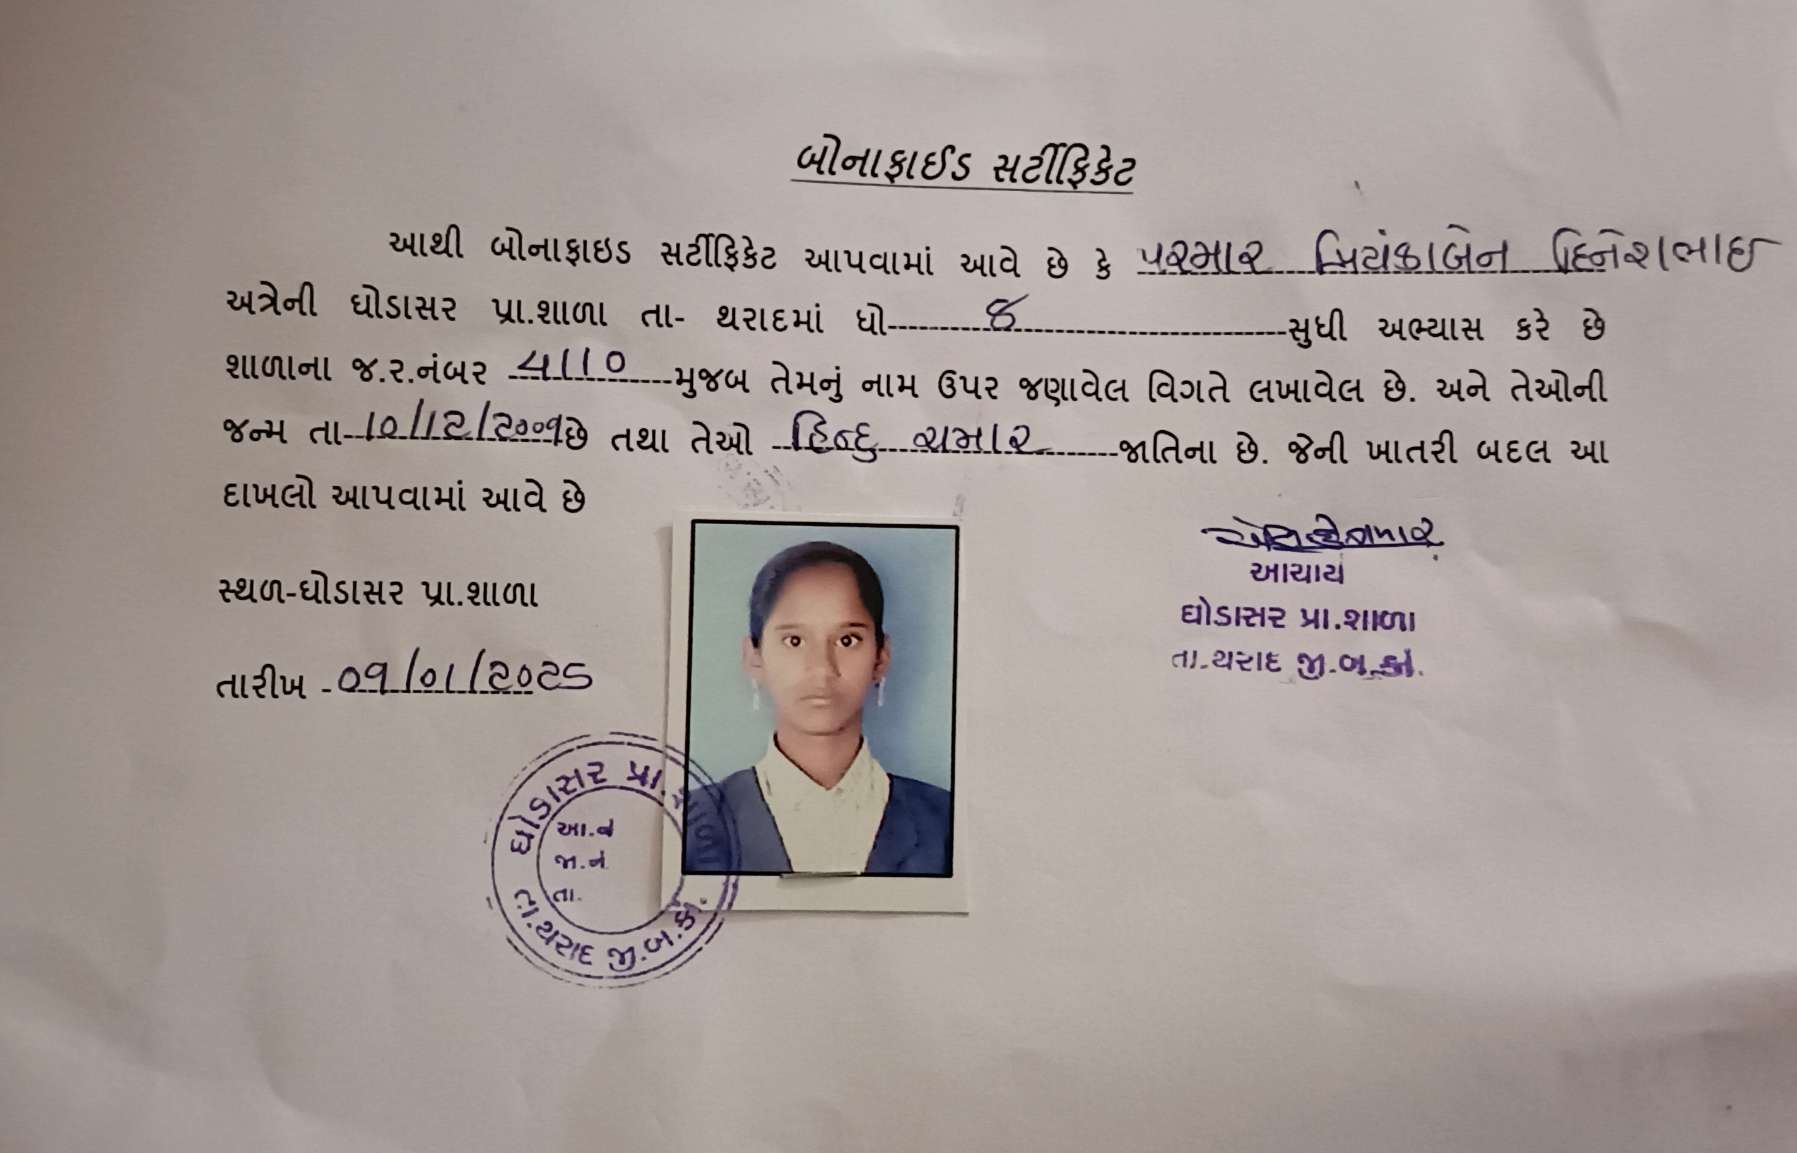 બોનાફાઈડ સર્ટીફિકેટ
આથી બોનાફાઇડ સર્ટીફિકેટ આપવામાં આવે છે કે પરમાર પ્રિયંકાબેન દિનેશભાઇ
અત્રેની ઘોડાસર પ્રા.શાળા તા- થરાદમાં ધો-8-સુધી અભ્યાસ કરે છે
શાળાના જ.ર.નંબર 4110 મુજબ તેમનું નામ ઉપર જણાવેલ વિગતે લખાવેલ છે. અને તેઓની
જન્મ તા-10/12/2009છે તથા તેઓ હિન્દુ ચમાર જાતિના છે. જેની ખાતરી બદલ આ
દાખલો આપવામાં આવે છે
આચાર્ય
ઘોડાસર પ્રા.શાળા
તા.થરાદ જી.બ.કાં.
સ્થળ-ઘોડાસર પ્રા.શાળા
તારીખ -09/01/2025
ઘોડાસર પ્રા.શાળા
આ.ન
જા.નં.
તા.
તા.થરાદ જી.બ.કાં.